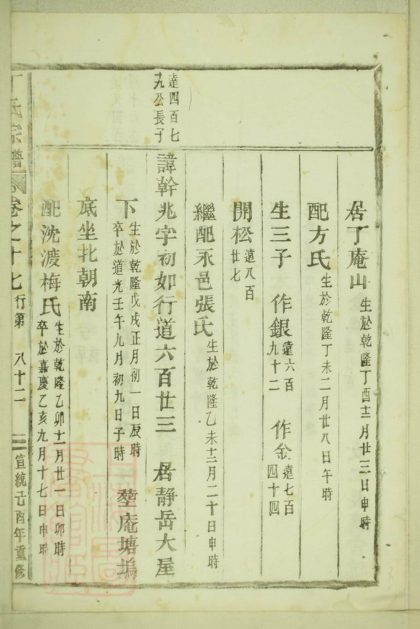 居丁庵山 生於乾隆丁酉十二月廿三日申時
配方氏 生於乾隆丁未二月廿八日午時
生三子 作銀 遠六百九十二 作金 遠七百四十四
開松 遠八百廿七
繼配永邑張氏 生於乾隆乙未十二月二十日申時
達四百七十九公長子
諱幹兆字初如行道六百廿三 居靜岳大屋
下 生於乾隆戊戌正月初一日辰時 卒於道光壬午九月初九日子時 塟庵塘塢
底坐北朝南
配沈渡梅氏 生於乾隆乙卯十一月廿一日卯時 卒於嘉慶乙亥九月十七日申時
丁氏宗譜 卷之十七 行第 八十二 宣統己酉年重修